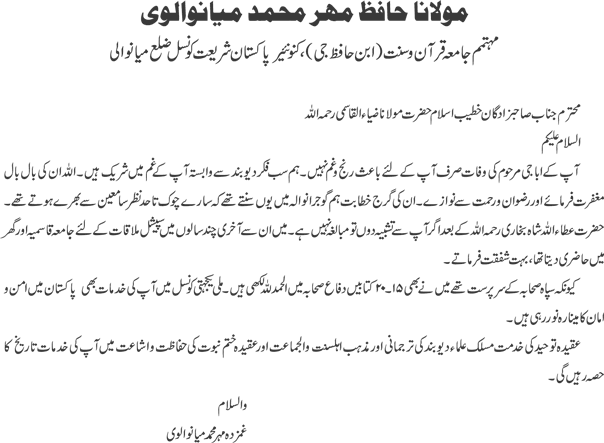 مولانا حافظ مہر محمد میانوالوی
مہتمم جامعہ قرآن وسنت (ابن حافظ جی)، کنوینیر پاکستان شریعت کونسل ضلع میانوالی
محترم جناب صاحبزادگان خطیب اسلام حضرت مولانا ضیاء القاسمی رحمہ اللہ
السلام علیکم
آپ کے اباجی مرحوم کی وفات صرف آپ کے لئے باعث رنج وغم نہیں۔ ہم سب فکر دیوبند سے وابستہ آپ کے غم میں شریک ہیں۔ اللہ ان کی بال بال
مغفرت فرمائے اور رضوان ورحمت سے نوازے۔ ان کی گرج خطابت ہم گوجرانوالہ میں یوں سنتے تھے کہ سارے چوک تاحد نظر سامعین سے بھرے ہوتے تھے۔
حضرت عطاء اللہ شاہ بخاری رحمہ اللہ کے بعد اگر آپ سے تشبیہ دوں تو مبالغہ نہیں ہے۔ میں ان سے آخری چند سالوں میں سپیشل ملاقات کے لئے جامعہ قاسمیہ اور گھر
میں حاضری دیتا تھا، بہت شفقت فرماتے۔
کیونکہ سپاہ صحابہ کے سرپرست تھے میں نے بھی ۱۵۔۲۰ کتابیں دفاع صحابہ میں الحمد للہ لکھی ہیں۔ ملی یکجہتی کونسل میں آپ کی خدمات بھی پاکستان میں امن و
امان کا مینارہ نور رہی ہیں۔
عقیدہ توحید کی خدمت مسلک علماء دیوبند کی ترجمانی اور مذہب اہلسنت والجماعت اور عقیدہ ختم نبوت کی حفاظت واشاعت میں آپ کی خدمات تاریخ کا
حصہ رہیں گی۔
والسلام
غمزدہ مہر محمد میانوالوی